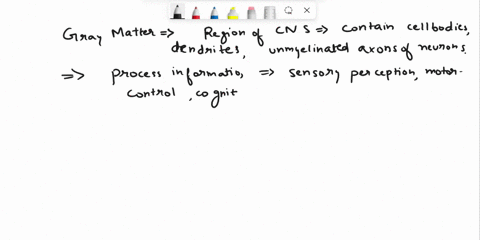 Gray Matter => Region of CNS => contain cell bodies,
dendrites, unmyelinated axons of neurons.
=> process informatio, => sensory perception, motor-
control, cognit